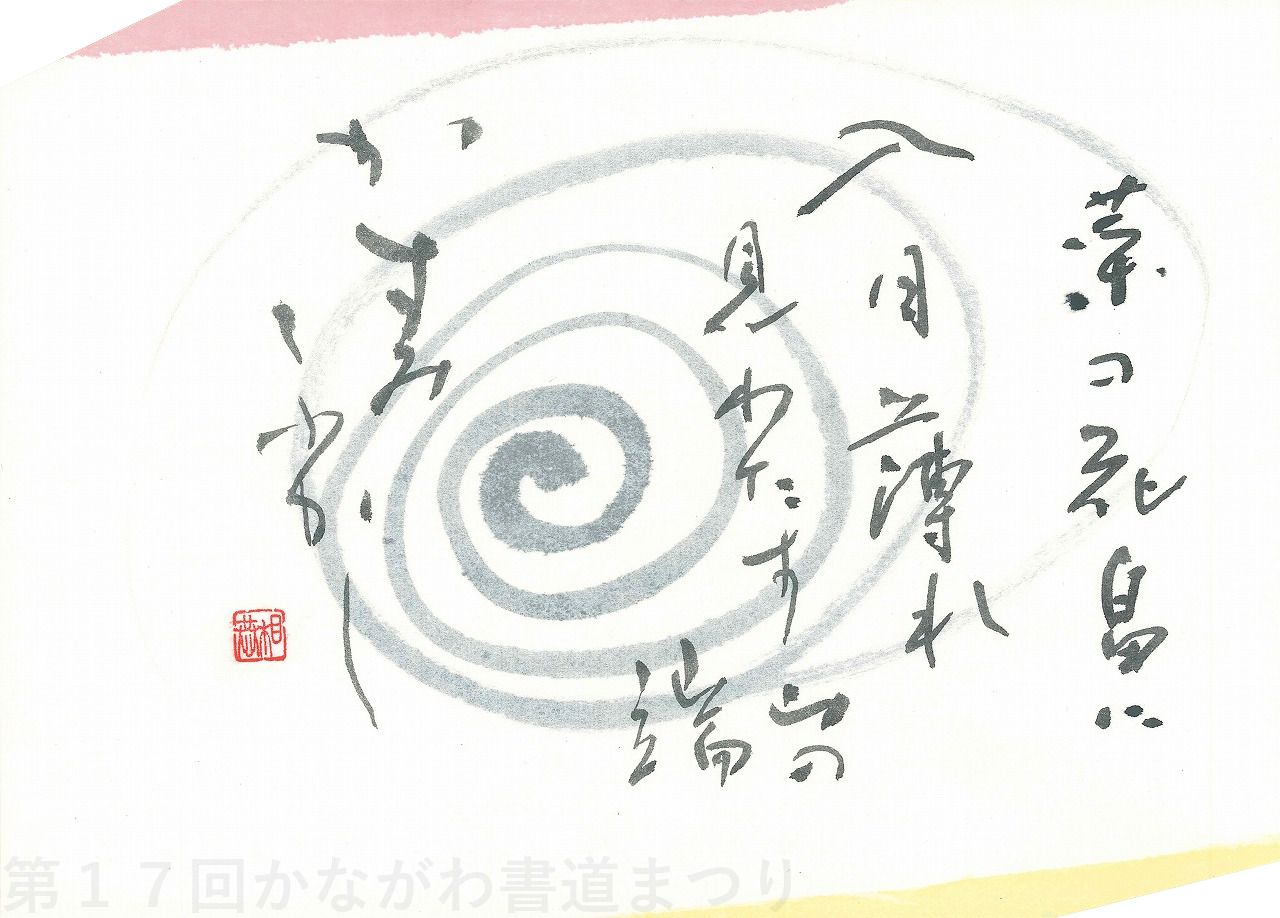 菜の花畠に
入日薄れ
見わたす山の
端
かすみ
ふかし
第１７回かながわ書道まつり